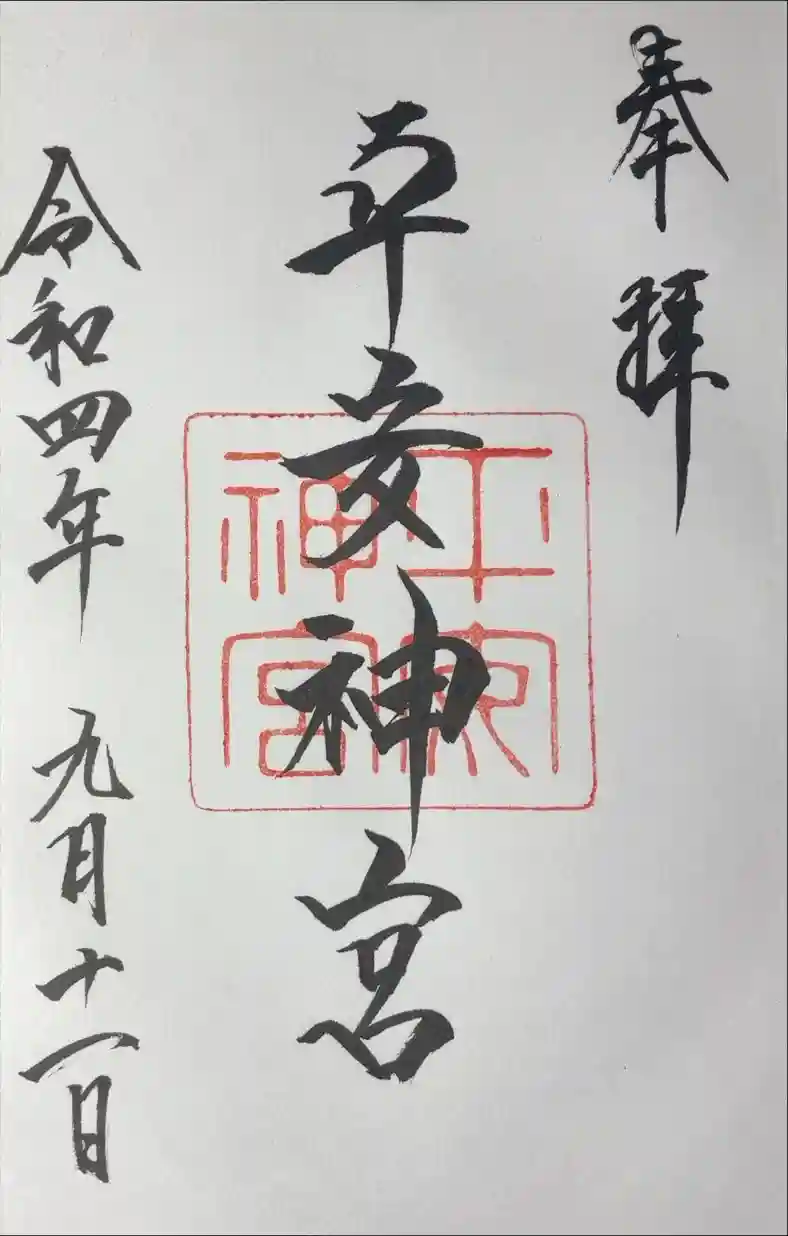 奉拝
平安神宮
平安神宮
令和四年 九月十一日